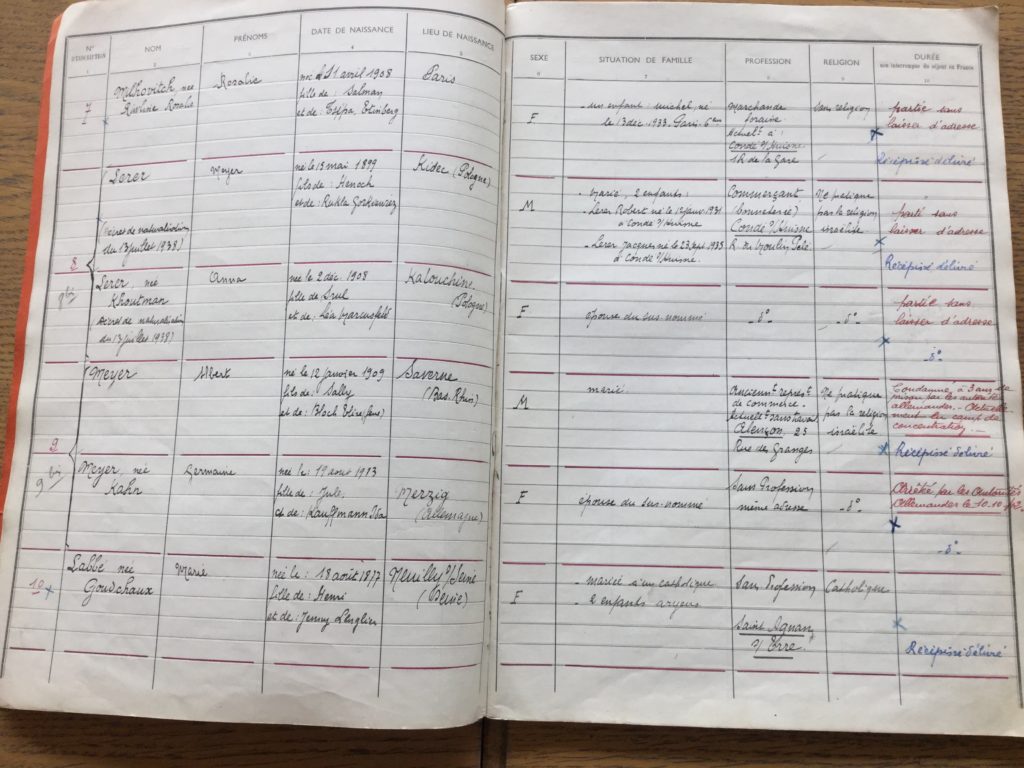 N° D'INSCRIPTION
NOM
PRÉNOMS
DATE DE NAISSANCE
LIEU DE NAISSANCE
SEXE
SITUATION DE FAMILLE
PROFESSION
RELIGION
DURÉE
non interrompue du séjour en France
1 2 3 4 5 6 7 8 9 10
7
Milhovitch, née
Rosalie
Rosalie
née le 21 avril 1908
fille de: Salman
et de: Etinberg
Paris
F
- un enfant: michel, né
le 13 déc. 1933. Paris. 6ème
marchande
foraine
Actuelt à:
Condé s/Huisne
Sh de la Gare
sans religion
partie sans
laisser d'adresse
Récépissé délivré
8
Lerer
(Décret de naturalisation
du 13 juillet 1938)
Meyer
né le 15 mai 1899
fils de: Henoch
et de: Rukla
(Pologne)
M
- marié, 2 enfants:
- Lerer Robert né le 12 janv. 1931
à Condé s/Huisne
- Lerer Jacques né le 23 sept. 1935
à Condé s/Huisne.
Commerçant
(bonneterie)
Condé s/Huisne
R. du Moulin
Ne pratique
pas la religion
israélite
parti sans
laisser d'adresse
Récépissé délivré
8 bis
Lerer, née
Khoutman
Décret de naturalisation
du 13 juillet 1938)
Anna
née le 2 déc. 1908
fille de: Srul
et de: Léa
Kalouchine
(Pologne)
F
épouse du sus-nommé
- d° -
- d° -
partie sans
laisser d'adresse
- d° -
9
Meyer
Albert
né le 12 janvier 1909
fils de: Sally
et de: Bloch
Saverne
(Bas-Rhin)
M
marié
Ancient représt
de commerce.
Actuellt sans travail
Alençon, 25
Rue des Granges
Ne pratique
pas la religion
israélite
Condamné à 3 ans de
prison par les autorités
allemandes. - Actuelle-
ment en camp de
concentration. -
Récépissé délivré
9 bis
Meyer, née
Kahn
Germaine
née le: 19 août 1913
fille de: Jule,
et de: Kauffmann Ida
Merzig
(Allemagne)
F
épouse du sus-nommé
Sans Profession
même adresse
- d° -
Arrêté par les Autorités
Allemandes le 10.10.42
- d° -
10
Labbé née
Goudchaux
Marie
née le: 18 août 1877
fille de: Henri
et de: Jenny Lenglier
Neuilly s/Seine
(Seine)
F
- mariée à un catholique
- 2 enfants aryens
Sans Profession
Saint Agnan
s/ Erre.
Catholique
Récépissé délivré